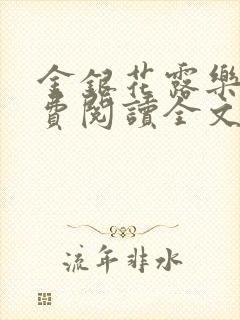 金銀花露樂
費閱讀全文
流年非水